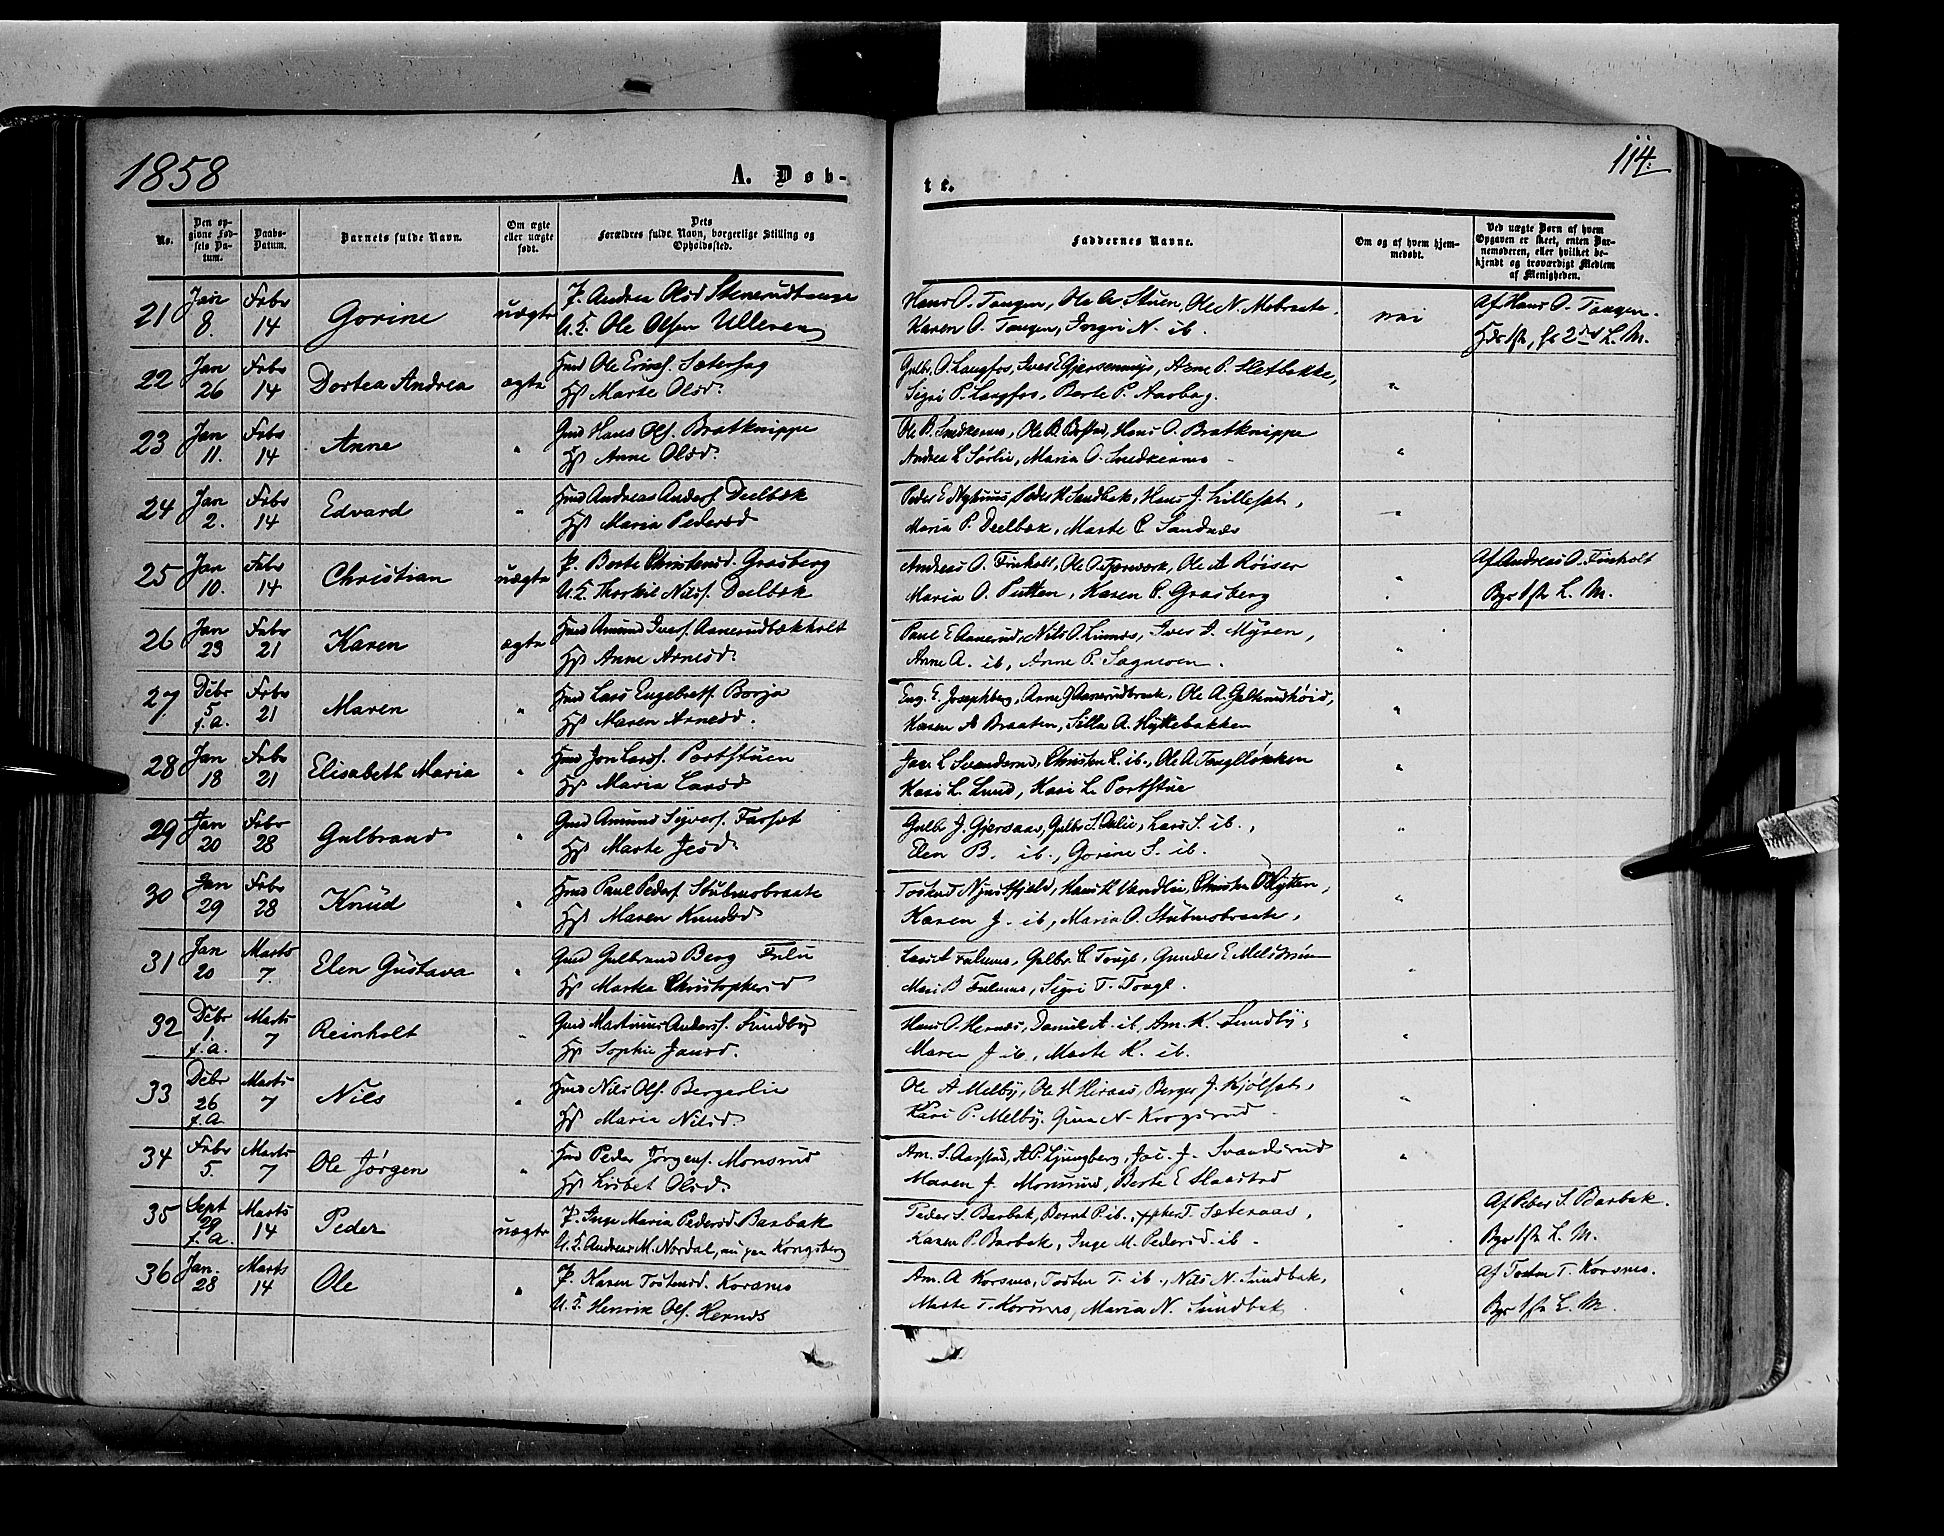 1858
A. Døb-
te.
114.
No.
Den op-
givne Fød-
sels Da-
tum.
Daabs-
Datum.
Barnets fulde Navn.
Om ægte
eller uægte
født.
Dets
Forældres fulde Navn, borgerlige Stilling og
Opholdssted.
Faddernes Navne.
Om og af hvem hjem-
medøbt.
Ved uægte Børn af hvem
Opgaven er skeet, enten Bar-
nemoderen, eller hvilket be-
kjendt og troværdigt Medlem
af Menigheden.
21 Jan 8. Febr 14 Gorine uægte
P. Andrea Olsd Stenerudtange
U.F. Ole Olsen Ulleren
Hans O. Tangen, Ole A. Stuen, Ole N. Mobraate,
Karen O. Tangen, Ingri N. ib.
nei
Af Hans O. Tangen.
22 Jan 26 Febr 14 Dortea Andrea ægte
Hmd Ole Ericss. Sæterhag
Hst Marte Olsd.
Gulbr. O. Langfos, Arne P. Sletbakke,
Sigri P. Langfos, Berte P. Aarbog.
"
23 Jan 11. Febr 14 Anne "
Gmd Hans Ols. Bratknippe
Hst Anne Olsd.
Ole B. Snekkernes, Ole B. Bolstad, Hans O. Bratknippe
Andrea L. Sørlie, Maria O. Snekkernes
"
24 Jan 2. Febr 14 Edvard "
Hmd Andreas Anders. Deelbæk
Hst Maria Pedersd
Peder E Nyhuus, Peder H Sandbæk, Hans J. Lilleset,
Maria P. Deelbæk, Marte P. Sandnæs
"
25 Jan 10. Febr 14 Christian uægte
P. Berte Christensd. Grasberg
U.F. Thorkil Nilss. Deelbæk
Andreas O. Finholt, Ole O. Tørverk, Ole A Røiser
Maria O. Putten, Karen P. Grasberg
"
Af Andreas O. Finholt
26 Jan 23 Febr 21 Karen ægte
Hmd Amund Ivers. Aanerudbækholt
Hst Anne Arnesd.
Paul E Aanerud, Nils O. Linnes, Iver I. Myren,
Anne A. ib, Anne P. Sagmoen.
"
27 Debr 5 f.a. Febr 21 Maren "
Hmd Lars Engebrets. Borja
Hst Maren Arnesd.
Eng. E. Josephberg, Arne J Aanerudbraat, Ole A.
Karen A Braaten, Silla A. Hyttebakken
"
28 Jan 18 Febr 21 Elisabeth Maria "
Hmd Jon Larss. Portstuen
Hst Maria Larsd
Jac. L. Svanderud, Christen L. ib., Ole A Tangløkken
Kari L. Lund, Kari L. Portstue
"
29 Jan 20 Febr 28 Gulbrand "
Gmd Amund Syvers. Farset
Hst Marte Jesd.
Gulbr J. Gjersaas, Gulbr S. Oslie, Lars S. ib.,
Elen B. ib., Gorine S. ib.
"
30 Jan 29 Febr 28 Knud "
Hmd Paul Peders. Stubmobraate
Hst Maren Knudsd
Tosten N Justfjeld, Hans K Vandlie, Christen O Hytten,
Karen J. ib, Maria O. Stubmobraate,
"
31 Jan 20 Marts 7. Elen Gustava "
Gmd Gulbrand Berg Fulu
Hst Martea Christophersd
Lars A Fulums, Gulbr C. Tougl, Gunder E Melstrøm
Mari B Fulums, Sigri T. Tougl.
"
32 Debr 1 f.a. Marts 7 Reinholt "
Gmd Martinus Anders. Sundby
Hst Sophie Jansd.
Hans O. Hernæs, Daniel A. ib, Am. K. Sundby,
Maren J ib, Marte K. ib.
"
33 Debr 26 f.a. Marts 7 Nils "
Hmd Nils Ols. Bergerlie
Hst Maria Nilsd.
Ole A Melby, Ole H Heraas, Berger J. Kjølset,
Kari P. Melby, Guna A. Krogsrud
"
34 Febr 5. Marts 7 Ole Jørgen "
Hmd Peder Jørgens. Monsrud
Hst Lisbet Olsd.
Am. S. Aarstad, A P. Ljungberg, Jac. J. Svanderud
Maren J. Monsrud, Berte E Haastad
"
35 Sept 29 f.a. Marts 14 Peder uægte
P. Inge Maria Pedersd Barbæk
U.F. Andreas M. Nordal, nu paa Kongsberg
Peder S. Barbæk, Bernt P. ib., T. Sæteraas,
Karen P. Barbæk, Inge M. Pedersd. ib.
"
Af Peder S. Barbæk.
36 Jan. 28 Marts 14 Ole "
P. Karen Tostensd. Korsnes
U.F. Henrik Ols. Hernes
Am. A Korsnes, Tosten T. ib., Nils N. Sundbæk,
Marte T. Korsnes, Maria N. Sundbæk
"
Af Tosten T. Korsnes.